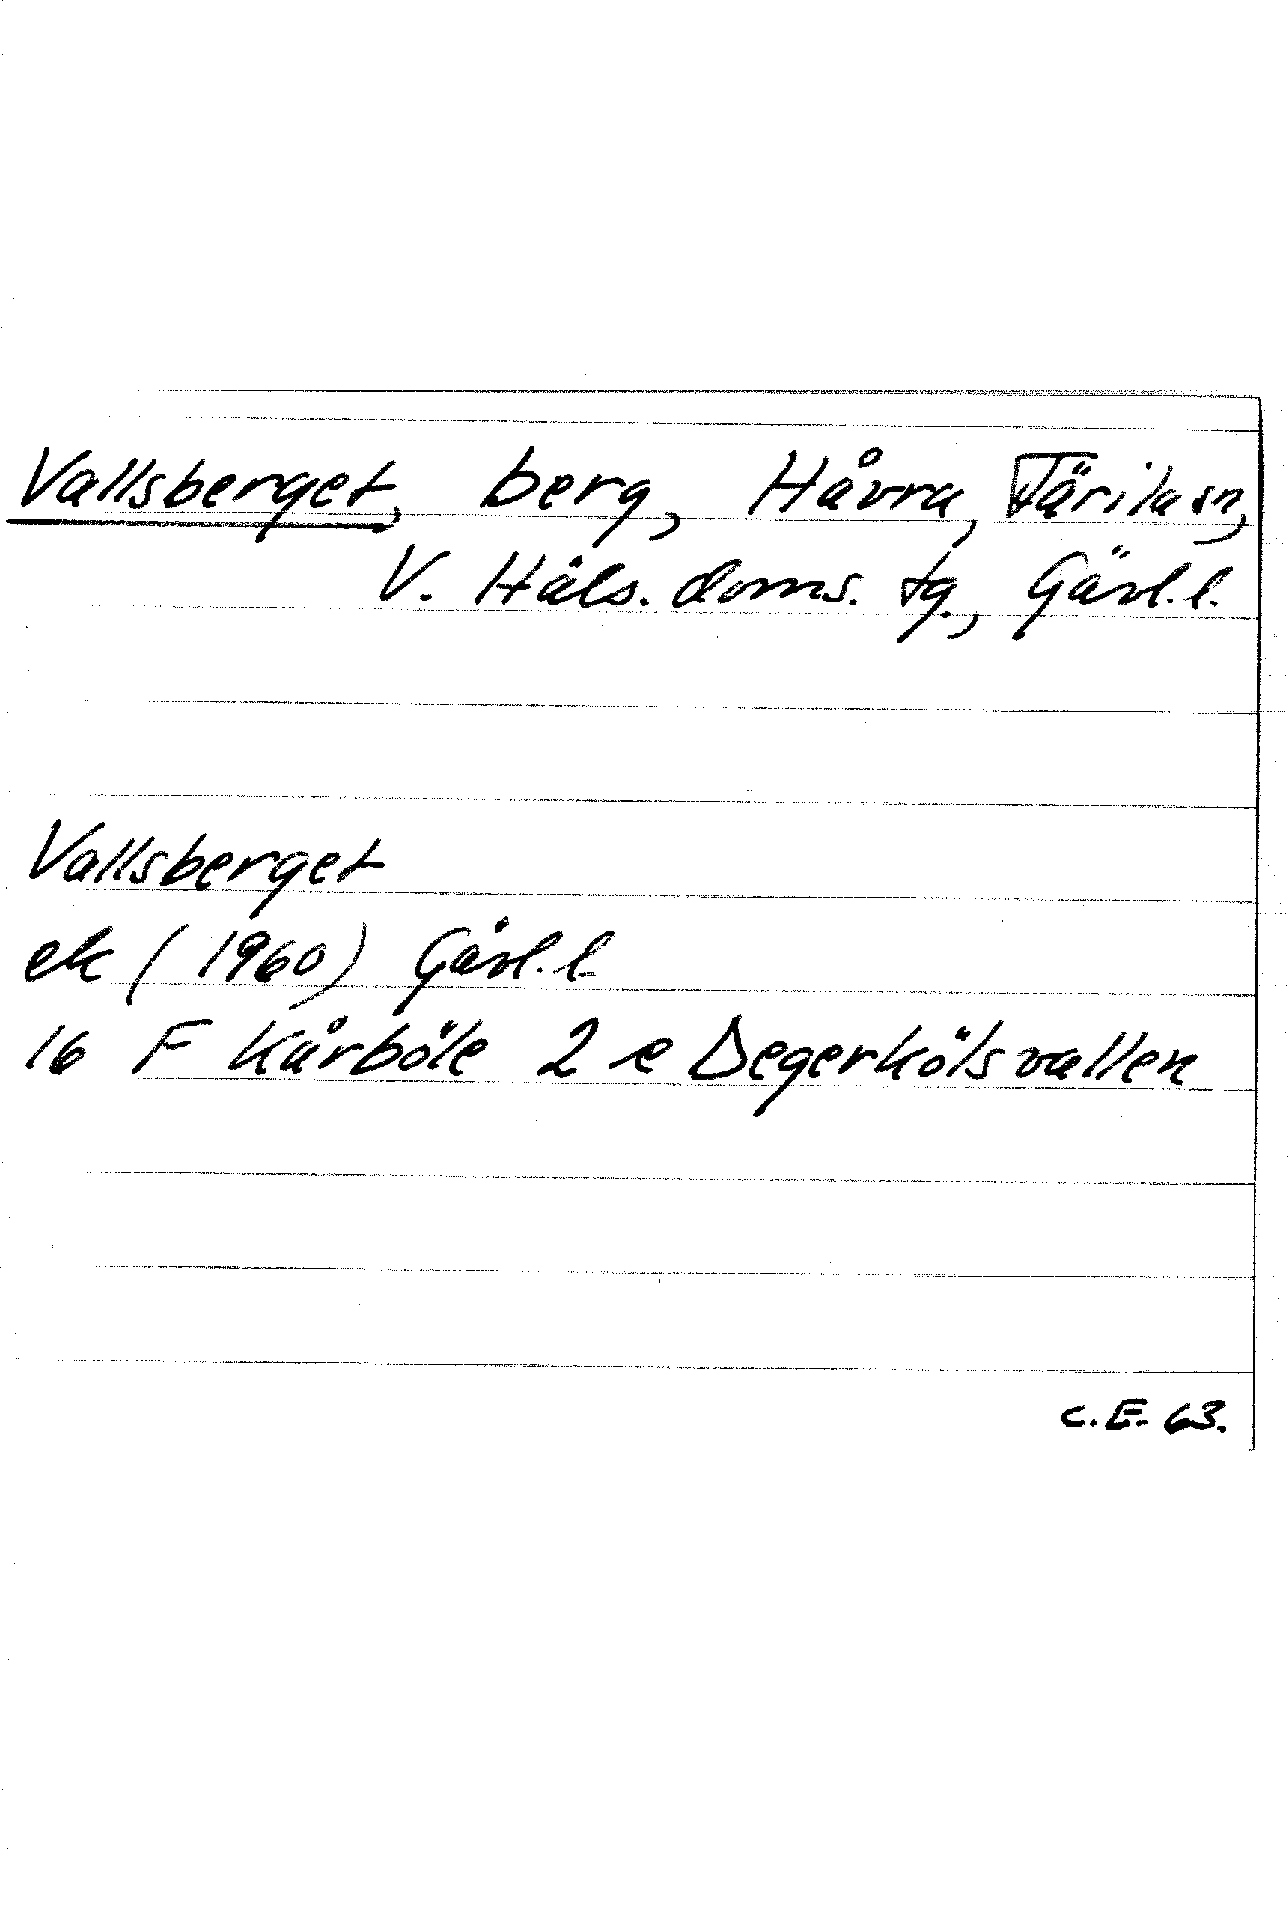 Vallsberget, berg, Håvra, Färila sn,
V. Häls. doms. tg., Gävl. l.
Vallsberget
ek (1960) Gävl. l.
16 F Kårböle 2 e Degerkölsvallen
C. E. 63.